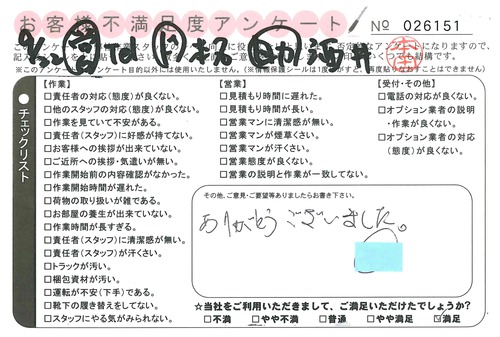 お客様不満足度アンケート
No 026151
チェックリスト
【作業】
□責任者の対応(態度)が良くない。
□他のスタッフの対応(態度)が良くない。
□作業を見ていて不安がある。
□責任者(スタッフ)に好感が持てない。
□お客様への挨拶が出来ていない。
□ご近所への挨拶・気遣いが無い。
□作業開始前の内容確認がなかった。
□作業開始時間が遅れた。
□荷物の取り扱いが雑である。
□お部屋の養生が出来ていない。
□作業時間が長すぎる。
□責任者(スタッフ)に清潔感が無い。
□責任者(スタッフ)が汗くさい。
□トラックが汚い。
□梱包資材が汚い。
□運転が不安(下手)である。
□靴下の履き替えをしてない。
□スタッフにやる気がみられない。
【営業】
□見積もり時間に遅れた。
□見積もり時間が長い。
□営業マンに清潔感が無い。
□営業マンが煙草くさい。
□営業マンが汗くさい。
□営業態度が良くない。
□営業の説明と作業が一致してない。
【受付・その他】
□電話の対応が良くない。
□オプション業者の説明
・作業が良くない。
□オプション業者の対応
(態度)が良くない。
その他、ご意見・ご要望等ありましたらお書き下さい。
ありがとうございました。
☆当社をご利用いただきまして、ご満足いただけたでしょうか?
□不満 □やや不満 □普通 □やや満足 ☑満足